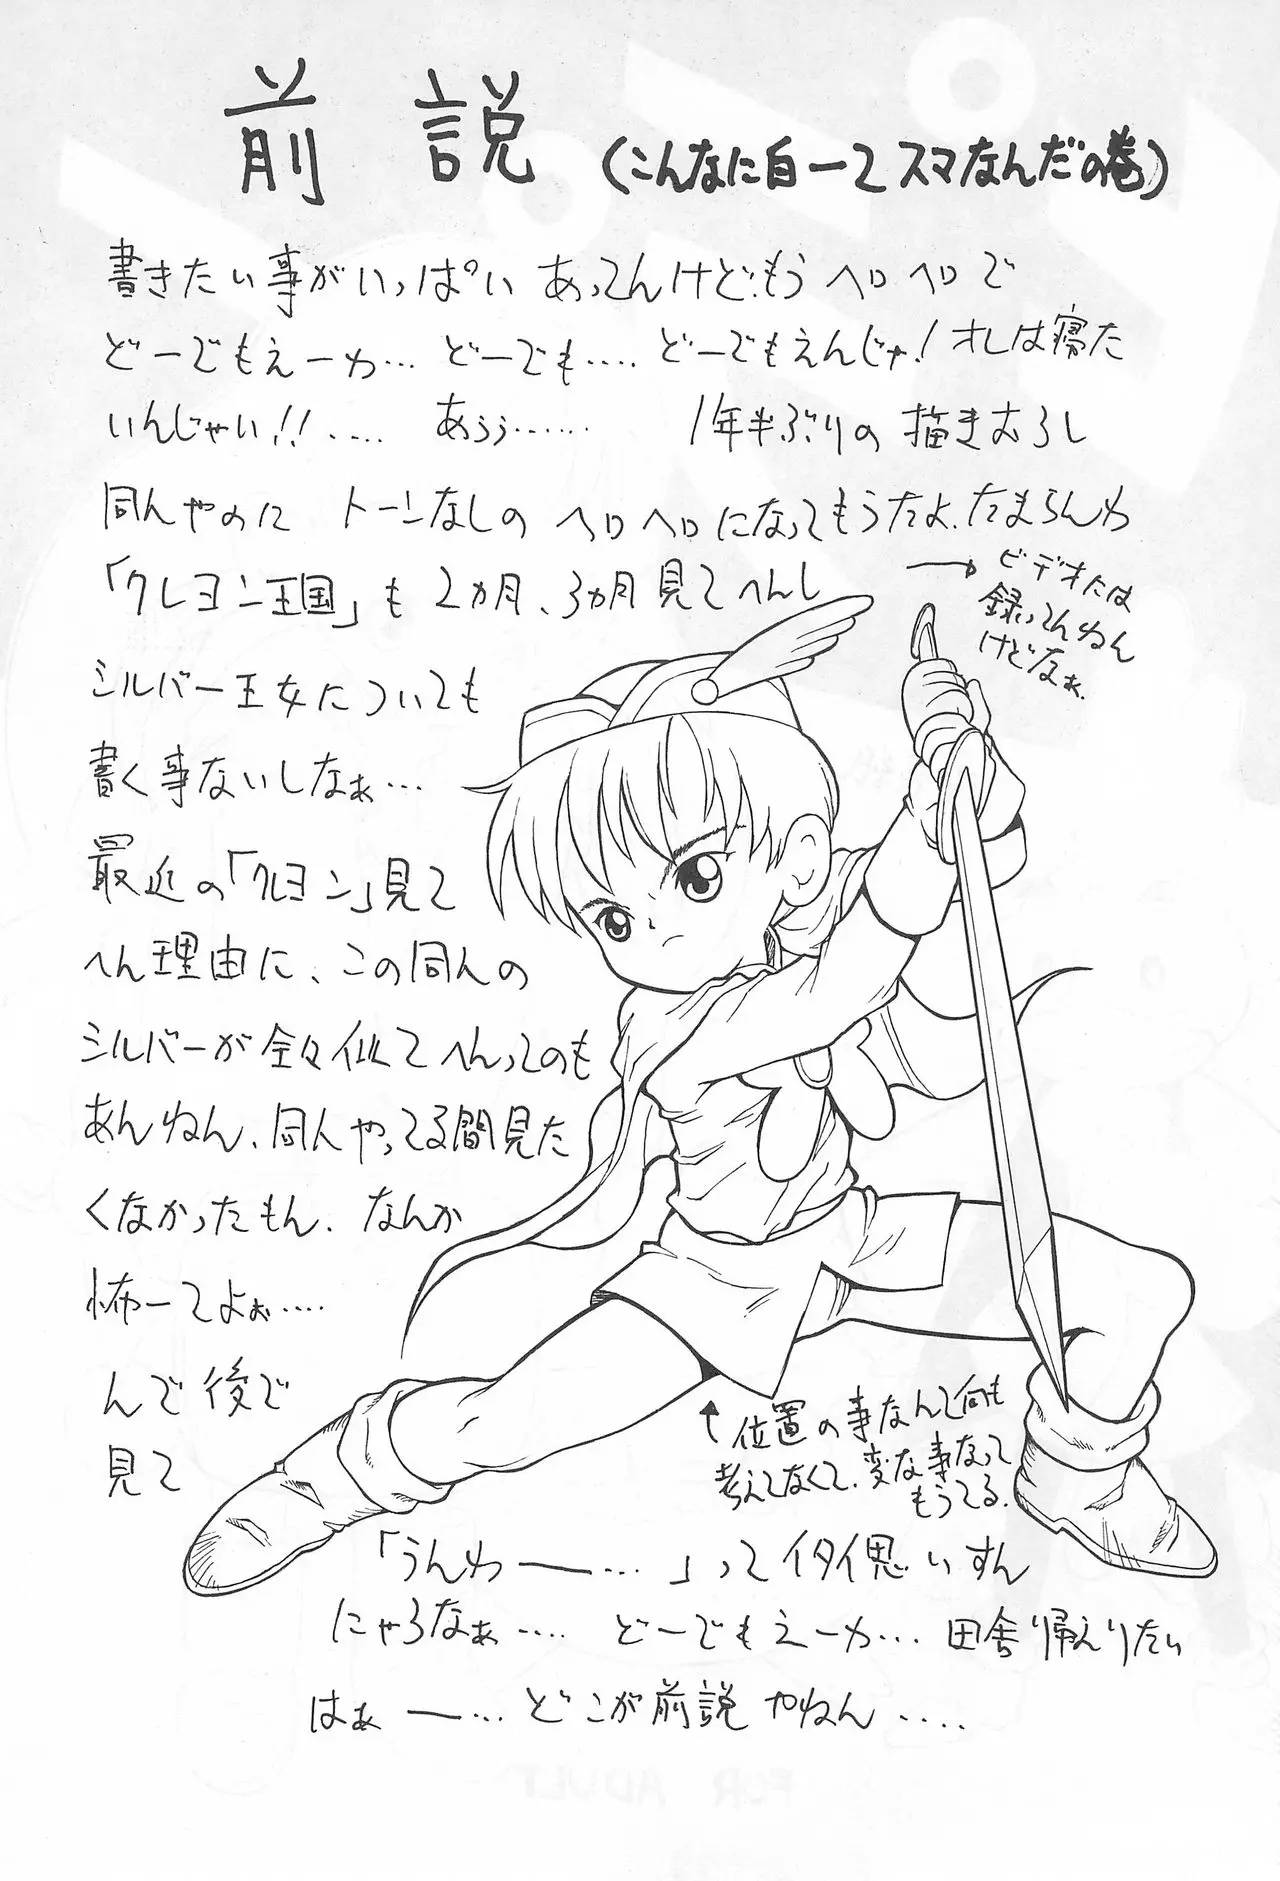 前説 (こんなに白ーてスマなんだの巻)
書きたい事がいっぱい あってんけど、もう ヘロヘロで
どーでもえーわ… どーでも…. どーでもえんじゃ!オレは寝た
いんじゃい!!….. あぅぅ…… 1年半ぶりの描きおろし
同人やのに トーンなしの ヘロヘロになってもうたよ.たまらんわ
「クレヨン王国」も 2カ月、3カ月見てへんし
→ビデオには
録ってんねん
けどなぁ.
シルバー王女についても
書く事ないしなぁ…
最近の「クレヨン」見て
へん理由に、この同人の
シルバーが全々似てへんってのも
あんねん、同人やってる間見た
くなかったもん. なんか
怖ーてよぉ….
んで後で
見て
↑位置の事なんて何も
考えてなくて.変な事なって
もうてる.
「うんわー…. 」って イタイ思いすん
にゃろなぁ…. どーでもえーわ…. 田舎帰えりたい
はぁー…. どこが前説やねん….
FOR ADULT